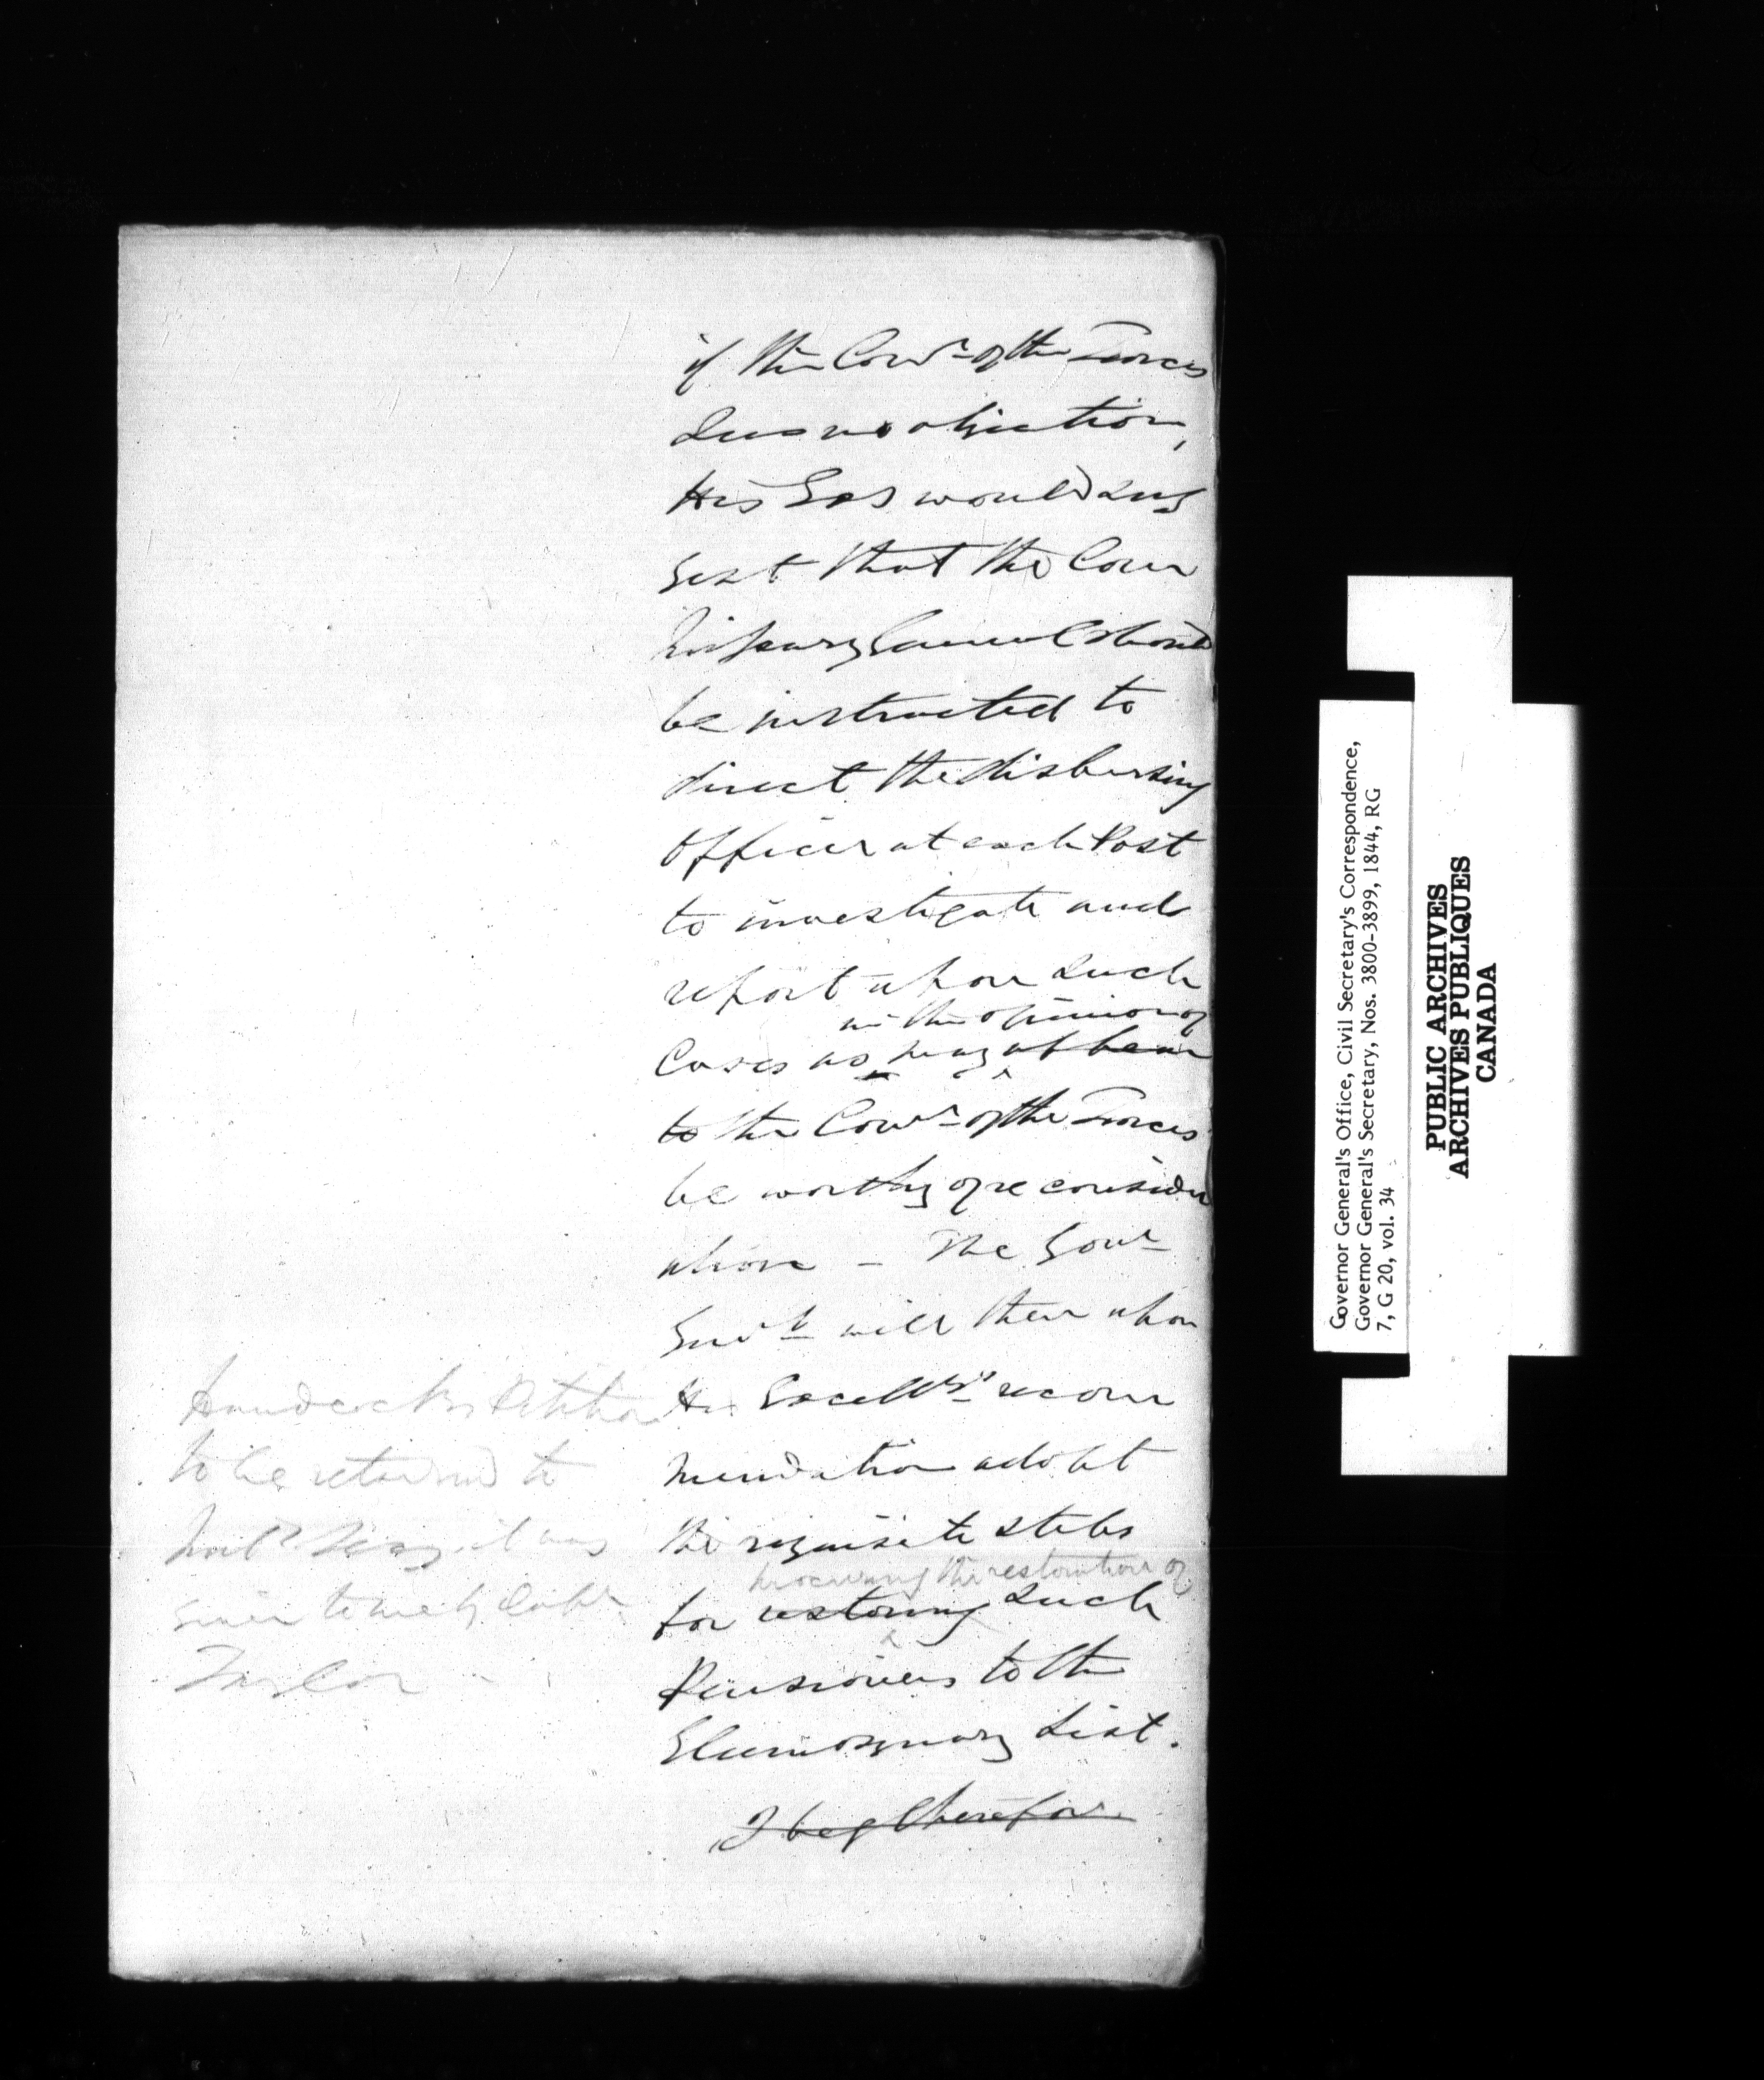 if the Com^r of the Forces
sees no objection,
His Ex^y would sug
gest that the Com
missary General should
be instructed to
direct the disbursing
Officer at each Post
to investigate and
report upon such
in the opinion of
Cases as may appear
to the Com^r of the Forces
be worthy of reconsider
ation – The Gov^r
Gen^l will then upon
His Excell^y's recom
mendation adopt
the requisite steps
procuring the restoration of
for restoring such
Pensioners to the
Eleemosynary List.
I beg therefore
Petition
to be returned to
it was
given to me by Capt
Taylor –
Governor General's Office, Civil Secretary's Correspondence,
Governor General's Secretary, Nos. 3800-3899, 1844, RG
7, G 20, vol. 34
PUBLIC ARCHIVES
ARCHIVES PUBLIQUES
CANADA